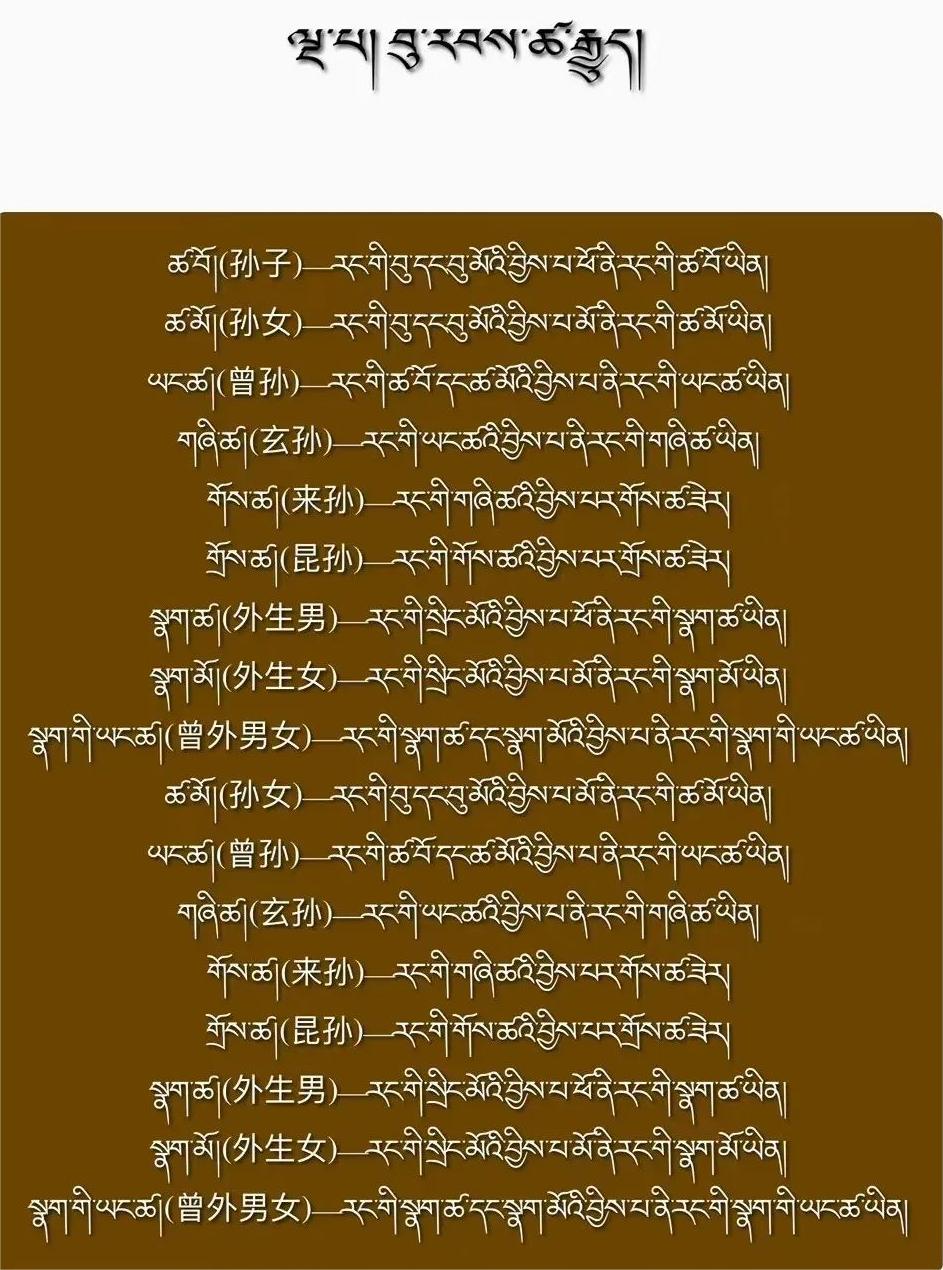 ལྔ་པ། བུ་རབས་ཚ་རྒྱུད།
ཚ་བོ།(孙子)—རང་གི་བུ་དང་བུ་མོའི་བྱིས་པ་ཕོ་ནི་རང་གི་ཚ་བོ་ཡིན།
ཚ་མོ།(孙女)—རང་གི་བུ་དང་བུ་མོའི་བྱིས་པ་མོ་ནི་རང་གི་ཚ་མོ་ཡིན།
ཡང་ཚ།(曾孙)—རང་གི་ཚ་བོ་དང་ཚ་མོའི་བྱིས་པ་ནི་རང་གི་ཡང་ཚ་ཡིན།
གཞི་ཚ།(玄孙)—རང་གི་ཡང་ཚའི་བྱིས་པ་ནི་རང་གི་གཞི་ཚ་ཡིན།
གོས་ཚ།(来孙)—རང་གི་གཞི་ཚའི་བྱིས་པར་གོས་ཚ་ཟེར།
གྲོས་ཚ།(昆孙)—རང་གི་གོས་ཚའི་བྱིས་པར་གྲོས་ཚ་ཟེར།
སྣག་ཚ།(外生男)—རང་གི་སྲིང་མོའི་བྱིས་པ་ཕོ་ནི་རང་གི་སྣག་ཚ་ཡིན།
སྣག་མོ།(外生女)—རང་གི་སྲིང་མོའི་བྱིས་པ་མོ་ནི་རང་གི་སྣག་མོ་ཡིན།
སྣག་གི་ཡང་ཚ།(曾外男女)—རང་གི་སྣག་ཚ་དང་སྣག་མོའི་བྱིས་པ་ནི་རང་གི་སྣག་གི་ཡང་ཚ་ཡིན།
ཚ་མོ།(孙女)—རང་གི་བུ་དང་བུ་མོའི་བྱིས་པ་མོ་ནི་རང་གི་ཚ་མོ་ཡིན།
ཡང་ཚ།(曾孙)—རང་གི་ཚ་བོ་དང་ཚ་མོའི་བྱིས་པ་ནི་རང་གི་ཡང་ཚ་ཡིན།
གཞི་ཚ།(玄孙)—རང་གི་ཡང་ཚའི་བྱིས་པ་ནི་རང་གི་གཞི་ཚ་ཡིན།
གོས་ཚ།(来孙)—རང་གི་གཞི་ཚའི་བྱིས་པར་གོས་ཚ་ཟེར།
གྲོས་ཚ།(昆孙)—རང་གི་གོས་ཚའི་བྱིས་པར་གྲོས་ཚ་ཟེར།
སྣག་ཚ།(外生男)—རང་གི་སྲིང་མོའི་བྱིས་པ་ཕོ་ནི་རང་གི་སྣག་ཚ་ཡིན།
སྣག་མོ།(外生女)—རང་གི་སྲིང་མོའི་བྱིས་པ་མོ་ནི་རང་གི་སྣག་མོ་ཡིན།
སྣག་གི་ཡང་ཚ།(曾外男女)—རང་གི་སྣག་ཚ་དང་སྣག་མོའི་བྱིས་པ་ནི་རང་གི་སྣག་གི་ཡང་ཚ་ཡིན།